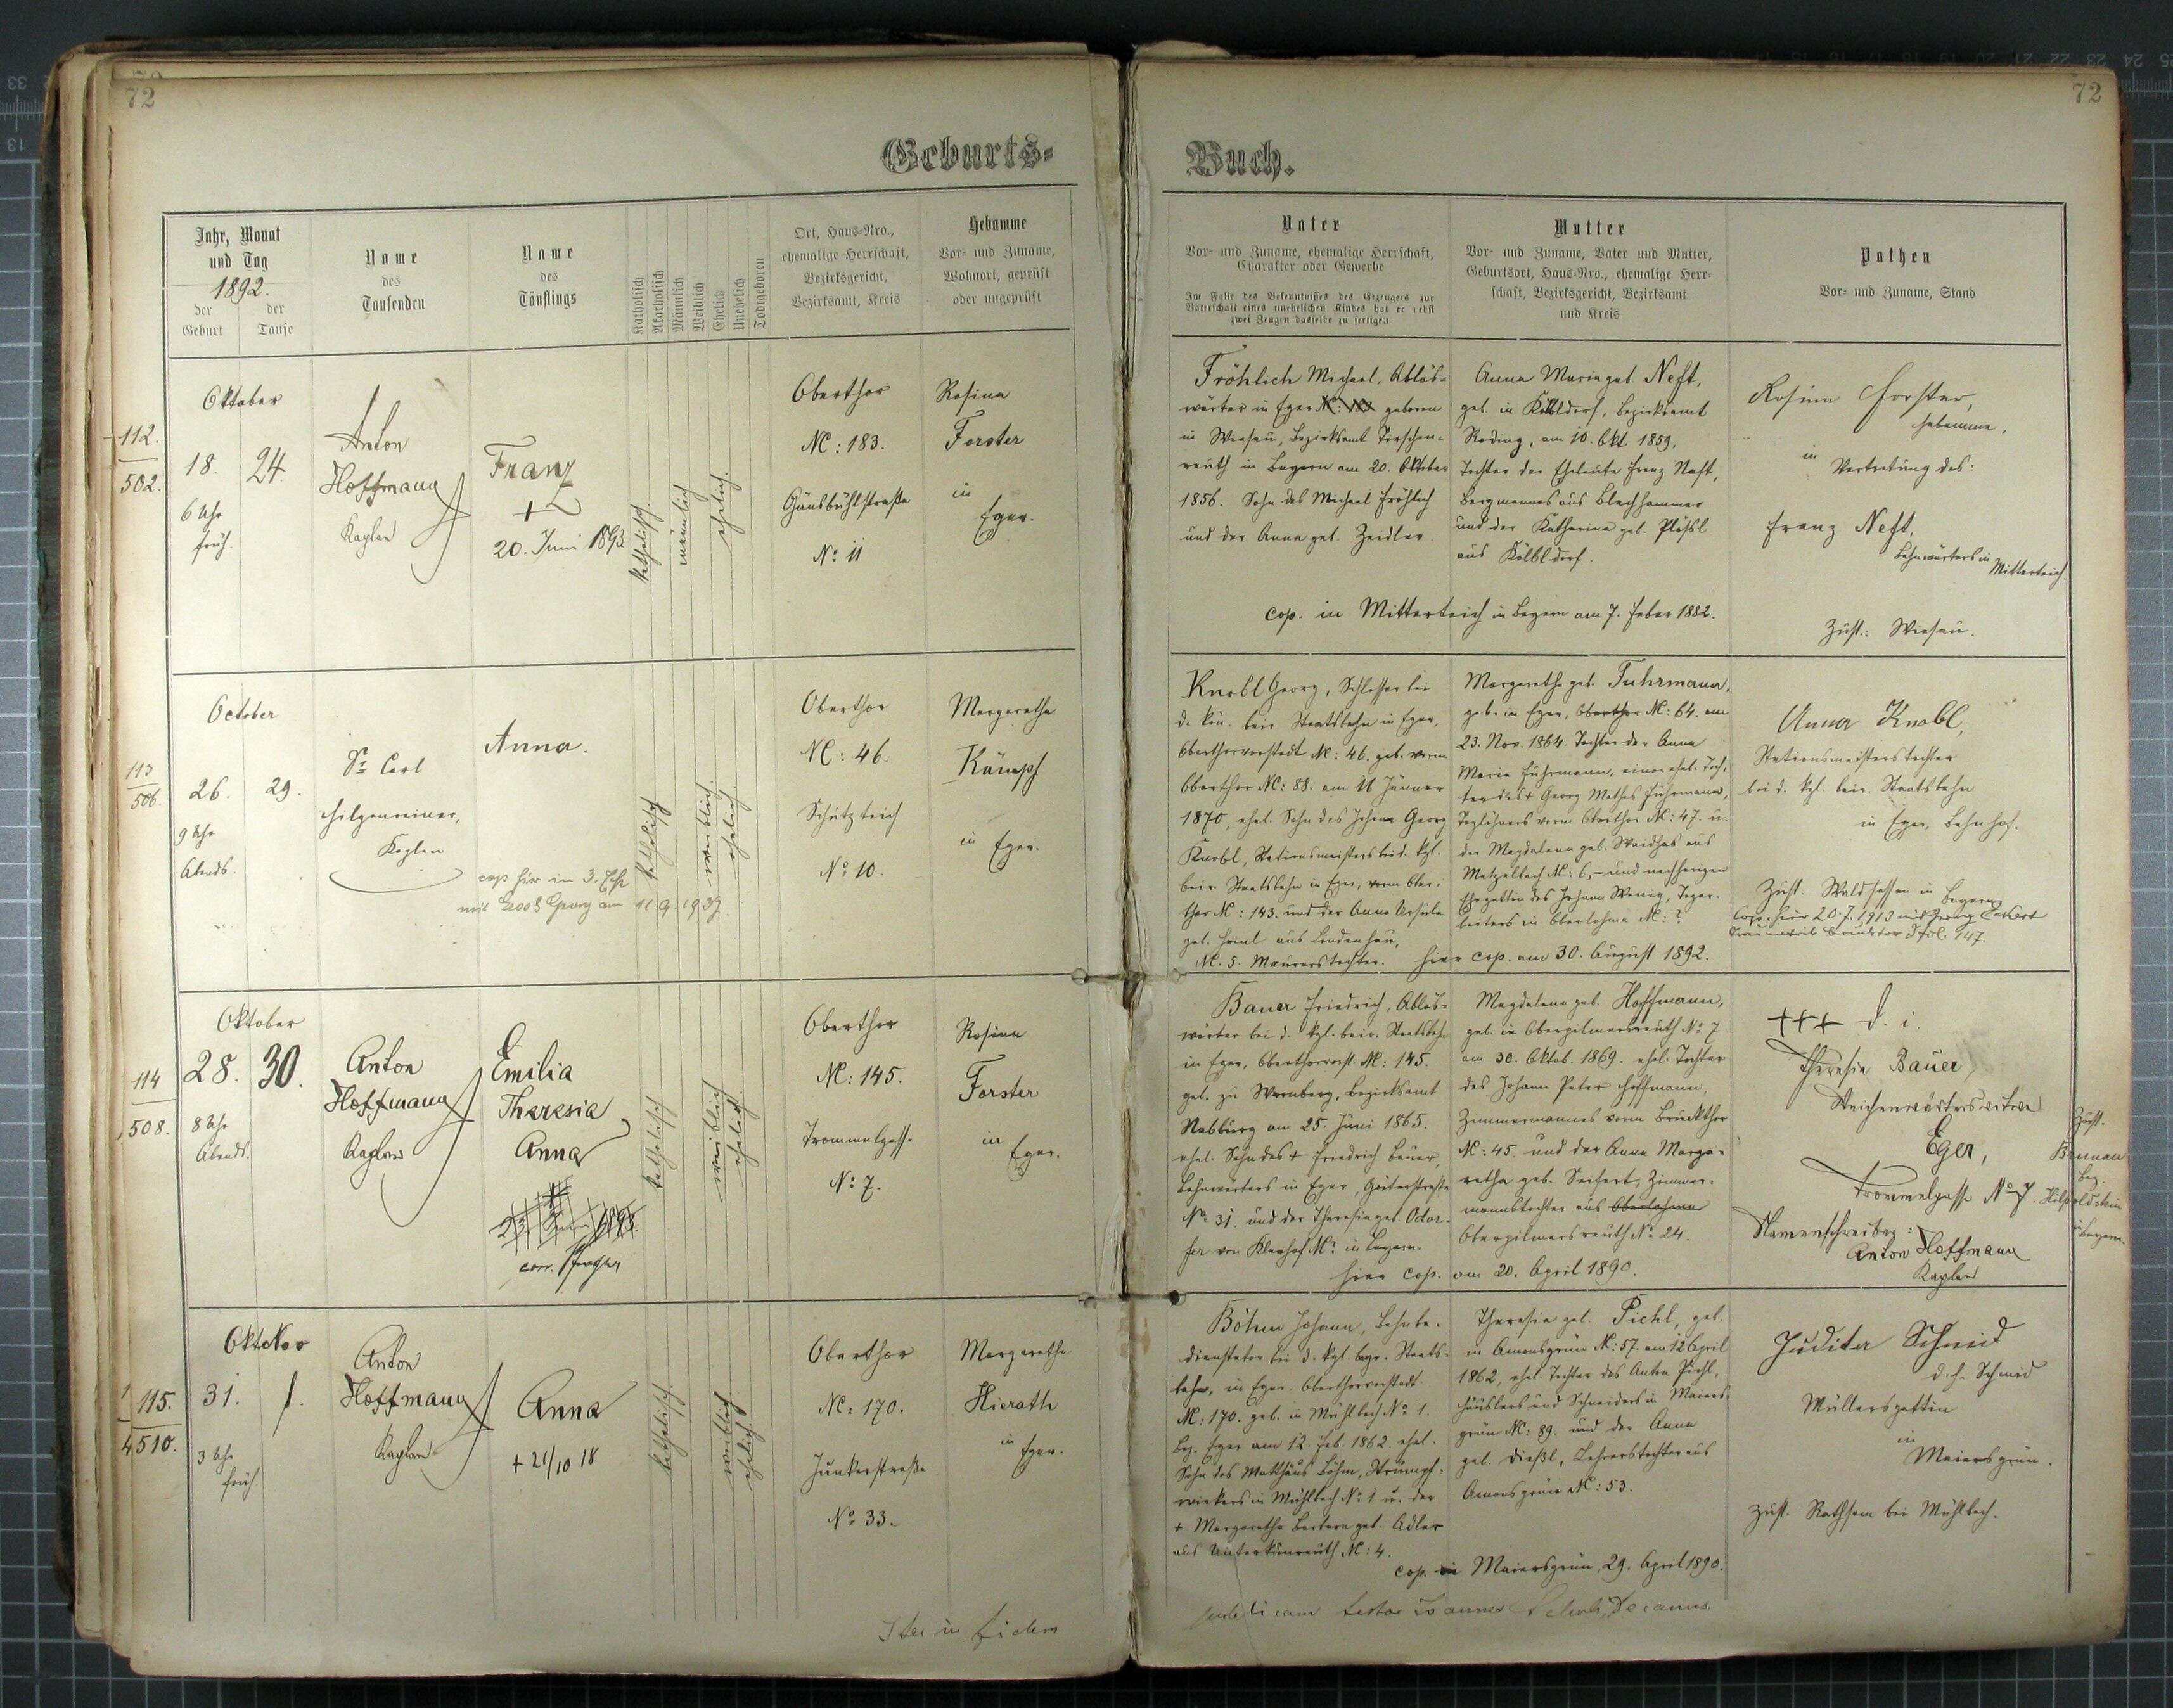 72
72
Geburts-
Buch.
Jahr, Monat
und Tag
1892.
der
Geburt
der
Taufe
Name
des
Taufenden
Name
des
Täuflings
Katholisch
Akatholisch
Männlich
Weiblich
Ehelich
Unehelich
Todtgeboren
Ort, Haus-Nro.,
ehemalige Herrschaft,
Bezirksgericht,
Bezirksamt, Kreis
Hebamme
Vor- und Zuname,
Wohnort, geprüft
oder ungeprüft
Vater
Vor- und Zuname, ehemalige Herrschaft,
Charakter oder Gewerbe
Im Falle des Bekenntnisses des Erzeugers zur
Vaterschaft eines unehelichen Kindes hat er nebst
zwei Zeugen dasselbe zu fertigen
Mutter
Vor- und Zuname, Vater und Mutter,
Geburtsort, Haus-Nro., ehemalige Herr-
schaft, Bezirksgericht, Bezirksamt
und Kreis
Pathen
Vor- und Zuname, Stand
112.
502.
Oktober
18.
24.
6 Uhr
früh.
Anton
Hoffmann
Kaplan
Franz
+
20. Juni 1893
katholisch
männlich
ehelich.
Oberthor
NC: 183.
Gänsbühlstraße
No 11
Rosina
Forster
in
Eger.
Fröhlich Michael, Ablös-
wärter in Eger geboren
in Wiesau, Bezirksamt Tirschen-
reuth in Bayern am 20. Oktober
1856. Sohn des Michael Fröhlich
und der Anna geb. Zeidler.
Anna Maria geb. Neft,
geb. in Kölbldorf, Bezirksamt
Roding, am 10. Okt. 1859,
Tochter der Eheleute Franz Neft,
Bergmannes aus Blechhammer
und der Katharina geb. Plößl
aus Kölbldorf.
cop. in Mitterteich in Bayern am 7. Feber 1882.
Rosina Forster,
Hebamme,
in
Vertretung des:
Franz Neft,
Bahnwärters in
Mitterteich.
Zust.: Wiesau.
113
506.
October
26.
29.
9 Uhr
Abends.
Carl
Hilgenreiner,
Kaplan
Anna.
cop hier in
mit Georg am 11.9.1939
katholisch
weiblich.
ehelich.
Oberthor
NC: 46.
Schützteich
No 10.
Margaretha
Kämpf
in Eger.
Knobl Georg, Schlosser bei
d. kön. bair. Staatsbahn in Eger,
Oberthorvorstadt NC: 46. geb. vorm
Oberthor NC: 88. am 16 Jänner
1870, ehel. Sohn des Johann Georg
Knobl, Stationsmeisters bei d. kgl.
bair. Staatsbahn in Eger, vorm Ober-
thor NC: 143. und der Anna Ursula
geb. Heinl aus Lindenhau,
NC. 5. Maurerstochter.
Margaretha geb. Fuhrmann,
geb. in Eger, Oberthor NC: 64. am
23. Nov. 1864. Tochter der Anna
Maria Fuhrmann, einer ehel. Toch-
ter des + Georg Mathes Fuhrmann,
Taglöhners vorm Oberthor NC: 47. u.
der Magdalena geb. Waidhas aus
Matzelbach NC: 6, – und nachherigen
Ehegattin des Johann Wenig, Tagar-
beiters in Oberlohma NC: ?
hier cop. am 30. August 1892.
Anna Knobl,
Stationsmeisterstochter
bei d. kgl. bair. Staatsbahn
in Eger, Bahnhof.
Zust. Waldsassen in Bayern
Cop. hier 20.7.1913 mit Georg Eckert
fol. 147.
114
508.
Oktober
28.
30.
8 Uhr
Abends.
Anton
Hoffmann
Kaplan
Emilia
Theresia
Anna
corr.
katholisch
weiblich
ehelich.
Oberthor
NC: 145.
Trommelgasse
No 7.
Rosina
Forster
in
Eger.
Bauer Friedrich, Ablös-
wärter bei d. kgl. bair. Staatsbahn
in Eger, Oberthorvorst. NC: 145.
geb. zu Wernberg, Bezirksamt
Nabburg am 25. Juni 1865.
ehel. Sohn des + Friedrich Bauer,
Bahnwärters in Eger, Güterstraße
No 31. und der Theresia geb. Odor-
fer von Klenhof NC? in Bayern.
Magdalena geb. Hoffmann,
geb. in Oberpilmersreuth No 7
am 30. Oktob. 1869. ehel. Tochter
des Johann Peter Hoffmann,
Zimmermannes vorm Bruckthor
NC: 45. und der Anna Marga-
retha geb. Seifert, Zimmer-
mannstochter aus Oberlohma
Oberpilmersreuth No 24.
hier cop. am 20. April 1890.
+++ d. i.
Theresia Bauer,
Weichenwärterswitwe
Eger,
Trommelgasse No 7.
Namenschreiber:
Anton Hoffmann
Kaplan
Zust.
Bez.
Hilpoldstein
in Bayern.
115.
510.
Okt. Nov
31.
1.
3 Uhr
früh.
Anton
Hoffmann
Kaplan
Anna
+ 21/10 18
katholisch.
weiblich
ehelich
Oberthor
NC: 170.
Junkerstraße
No 33.
Margaretha
Hierath
in
Eger.
Böhm Johann, Bahnbe-
diensteter bei d. kgl. bayr. Staats-
bahn, in Eger, Oberthorvorstadt
NC: 170. geb. in Mühlbach No 1.
Bez. Eger am 12. Feb. 1862. ehel.
Sohn des Matthäus Böhm, Strumpf-
wirkers in Mühlbach No 1 u. der
+ Margaretha Barbara geb. Adler
aus Unterkunreuth NC: 4.
Theresia geb. Pichl, geb.
in Amonsgrün NC: 57. am 12 April
1862, ehel. Tochter des Anton Pichl,
Häuslers und Schneiders in Maiers-
grün NC: 89. und der Anna
geb. Dießl, Lehrerstochter aus
Amonsgrün NC: 53.
cop. in Maiersgrün, 29. April 1890.
Juditha Schmid
d. h. Schmid
Müllersgattin
in
Maiersgrün.
Zust. Rathsam bei Mühlbach.
Ita in fidem
publicam testor Joannes Decanus.